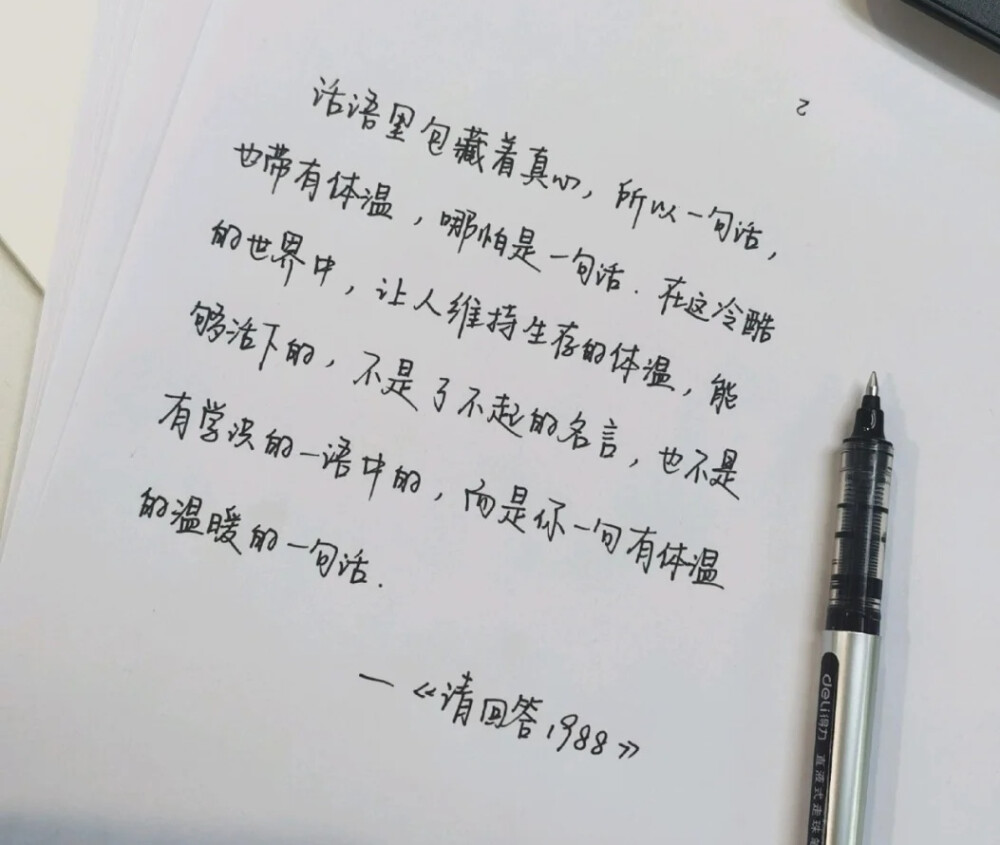 2
话语里包藏着真心，所以一句话，
也带有体温，哪怕是一句话．在这冷酷
的世界中，让人维持生存的体温，能
够活下的，不是了不起的名言，也不是
有学识的一语中的，而是你一句有体温
的温暖的一句话．
—《请回答1988》
deli得力 直液式走珠